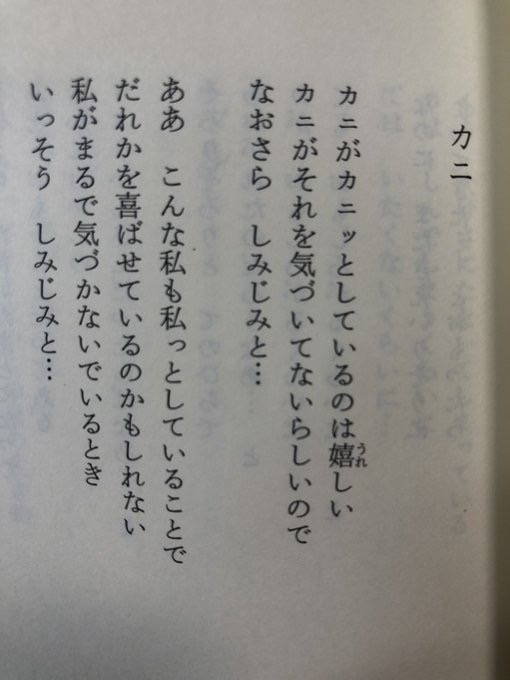 カニ
カニがカニッとしているのは嬉しい
うれ
カニがそれを気づいてないらしいので
なおさら　しみじみと…
ああ　こんな私も私っとしていることで
だれかを喜ばせているのかもしれない
私がまるで気づかないでいるとき
いっそう　しみじみと…